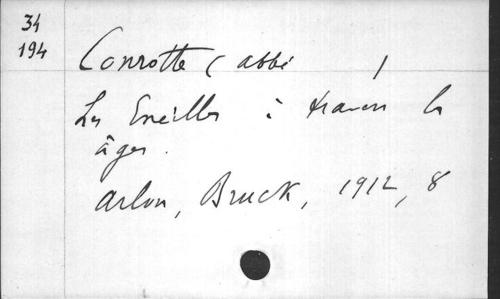 34
194
Conrotte (abbé )
Les Eneilles à travers les
âges.
Arlon, Bruck, 1912, 8